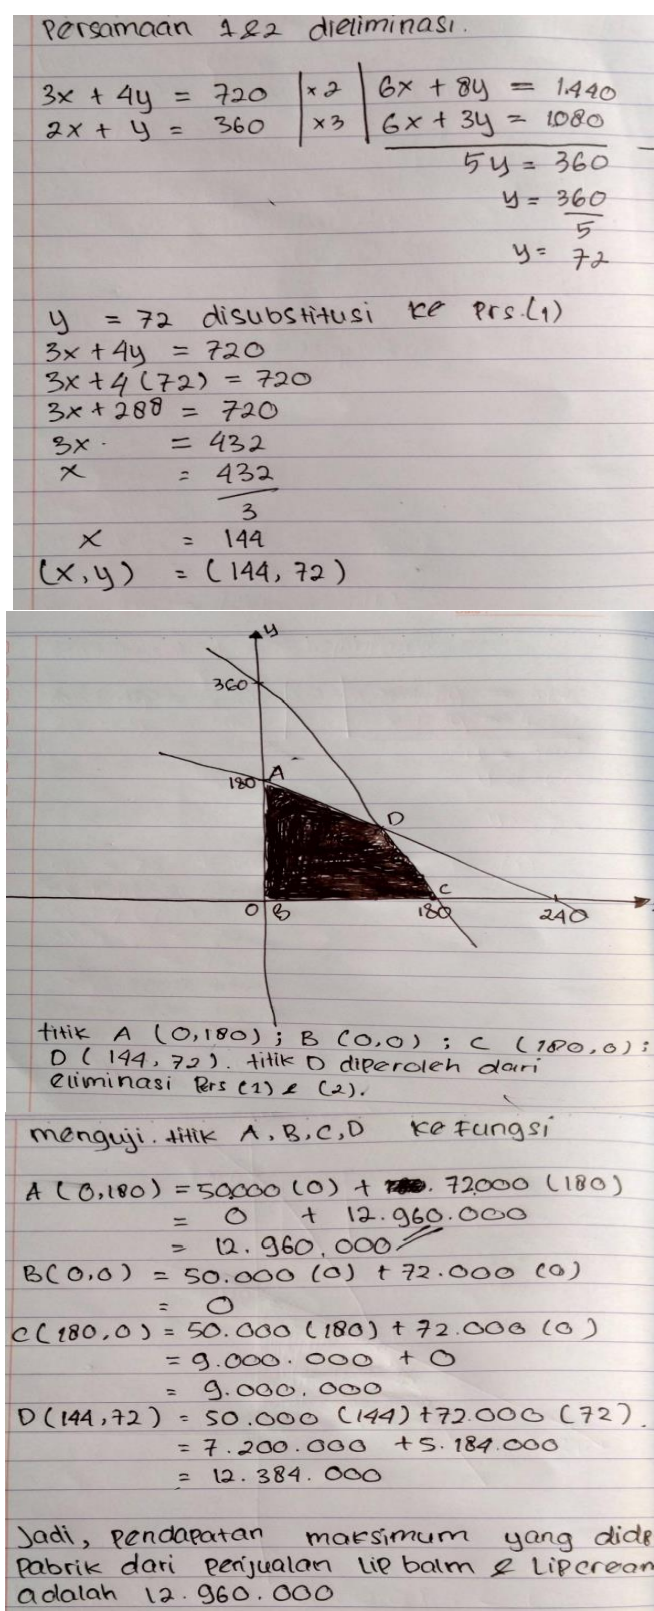 Persamaan 1&2 dieliminasi.
3x + 4y = 720 | ×2 | 6x + 8y = 1.440
2x + y = 360 | ×3 | 6x + 3y = 1080
5y = 360
y = 360
5
y = 72
y = 72 disubstitusi ke Prs.(1)
3x + 4y = 720
3x + 4 (72) = 720
3x + 288 = 720
3x = 432
x = 432
3
x = 144
(x,y) = (144, 72)
y
360
180 A
D
C
0 B 180 240
titik A (0,180) ; B (0,0) ; C (180,0) ;
D ( 144, 72). titik D diperoleh dari
eliminasi Pers (1) & (2).
menguji. titik A, B, C, D ke Fungsi
A (0,180) = 50.000 (0) + 72.000 (180)
= 0 + 12.960.000
= 12.960.000
B(0,0) = 50.000 (0) + 72.000 (0)
= 0
C(180,0) = 50.000 (180) + 72.000 (0)
= 9.000.000 + 0
= 9.000.000
D(144,72) = 50.000 (144) + 72.000 (72).
= 7.200.000 + 5.184.000
= 12.384.000
Jadi, pendapatan maksimum yang
Pabrik dari penjualan lip balm & Lipcream
adalah 12.960.000